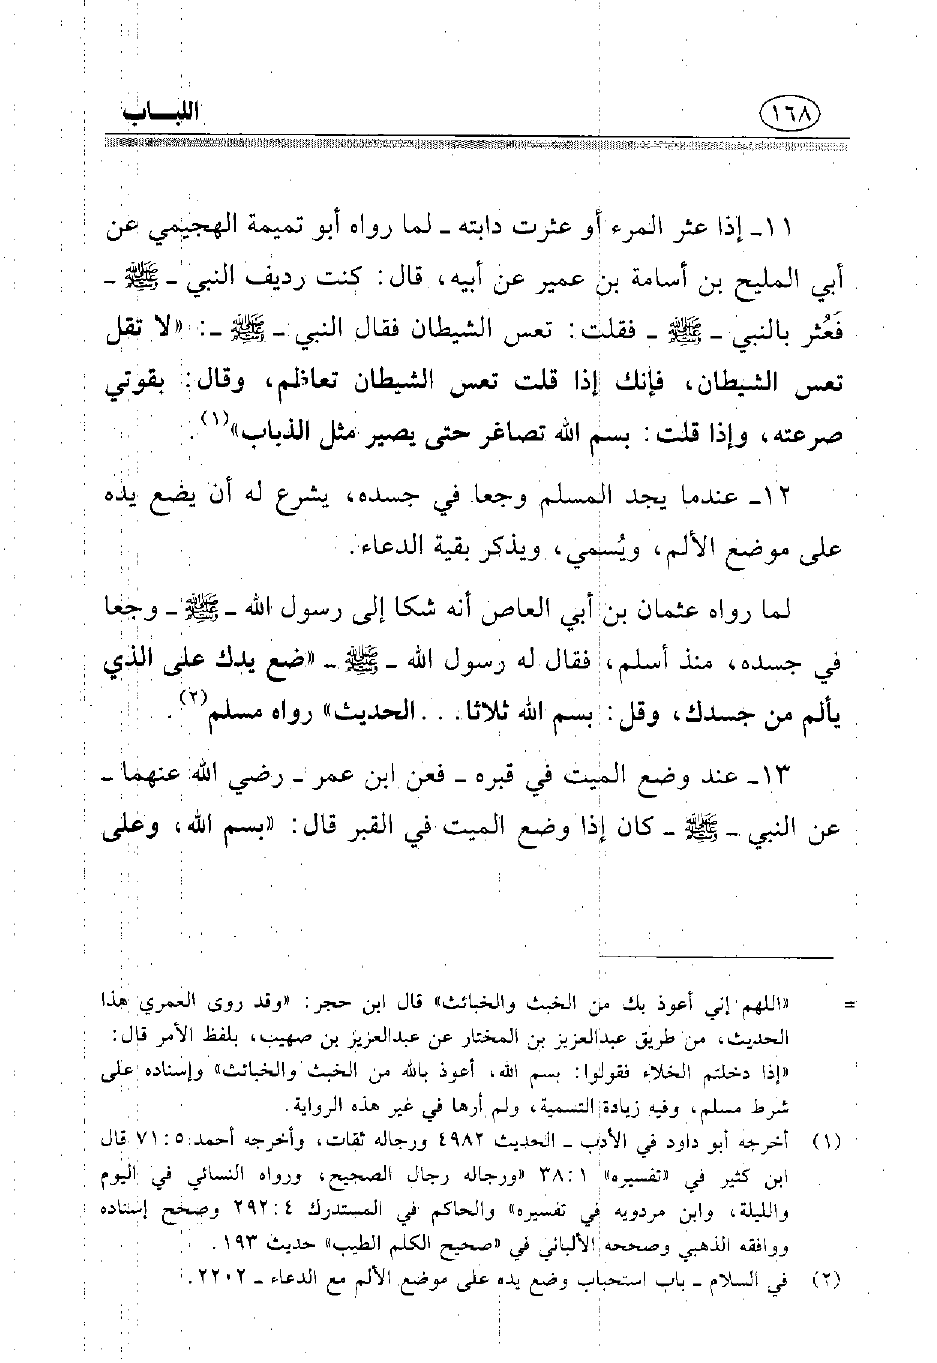 ١٦٨ اللبـــاب
١١ـ إذا عثر المرء أو عثرت دابته ـ لما رواه أبو تميمة الهجيمي عن
أبي المليح بن أسامة بن عمير عن أبيه، قال: كنت رديف النبي ـ ﷺ ـ
فَعُثر بالنبي ـ ﷺ ـ فقلت: تعس الشيطان فقال النبي ـ ﷺ ـ: «لا تقل
تعس الشيطان، فإنك إذا قلت تعس الشيطان تعاظم، وقال: بقوتي
صرعته، وإذا قلت: بسم الله تصاغر حتى يصير مثل الذباب»(١).
١٢ـ عندما يجد المسلم وجعا في جسده، يشرع له أن يضع يده
على موضع الألم، ويُسمي، ويذكر بقية الدعاء.
لما رواه عثمان بن أبي العاص أنه شكا إلى رسول الله ـ ﷺ ـ وجعا
في جسده، منذ أسلم، فقال له رسول الله ـ ﷺ ـ «ضع يدك على الذي
يألم من جسدك، وقل: بسم الله ثلاثا. . . الحديث» رواه مسلم(٢).
١٣ـ عند وضع الميت في قبره ـ فعن ابن عمر ـ رضي الله عنهما ـ
عن النبي ـ ﷺ ـ كان إذا وضع الميت في القبر قال: «بسم الله، وعلى
= «اللهم إني أعوذ بك من الخبث والخبائث» قال ابن حجر: «وقد روى العمري هذا
الحديث، من طريق عبدالعزيز بن المختار عن عبدالعزيز بن صهيب، بلفظ الأمر قال:
«إذا دخلتم الخلاء فقولوا: بسم الله، أعوذ بالله من الخبث والخبائث» وإسناده على
شرط مسلم، وفيه زيادة التسمية، ولم أرها في غير هذه الرواية.
(١) أخرجه أبو داود في الأدب ـ الحديث ٤٩٨٢ ورجاله ثقات، وأخرجه أحمد ٥: ٧١ قال
ابن كثير في «تفسيره» ١: ٣٨ «ورجاله رجال الصحيح، ورواه النسائي في اليوم
والليلة، وابن مردويه في تفسيره» والحاكم في المستدرك ٤: ٢٩٢ وصحح إسناده
ووافقه الذهبي وصححه الألباني في «صحيح الكلم الطيب» حديث ١٩٣.
(٢) في السلام ـ باب استحباب وضع يده على موضع الألم مع الدعاء ـ ٢٢٠٢.